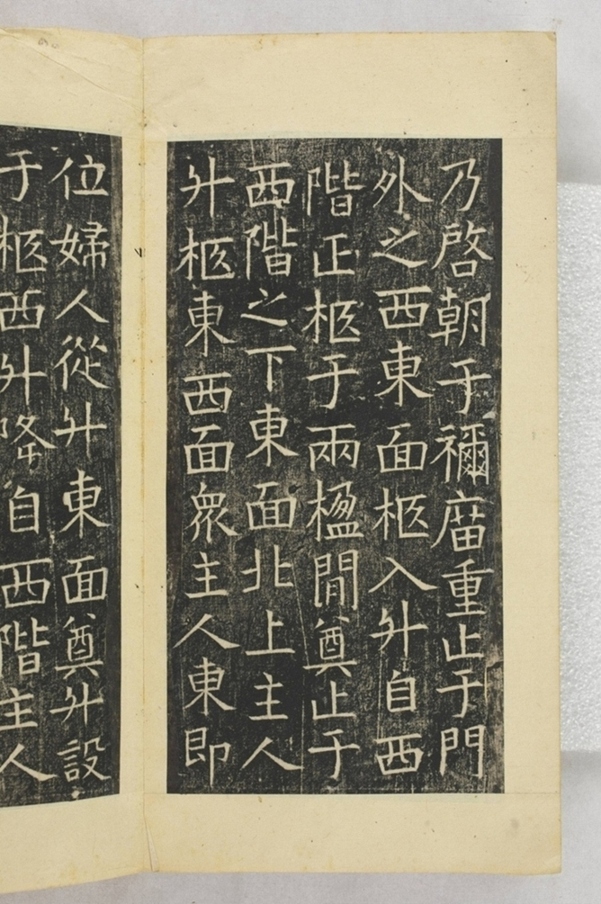 乃啓朝于禰庿重止于門
外之西東面柩入升自西
階正柩于兩楹閒奠止于
西階之下東面北上主人
升柩東西面衆主人東即
位婦人從升東面奠升設
于柩西升降自西階主人